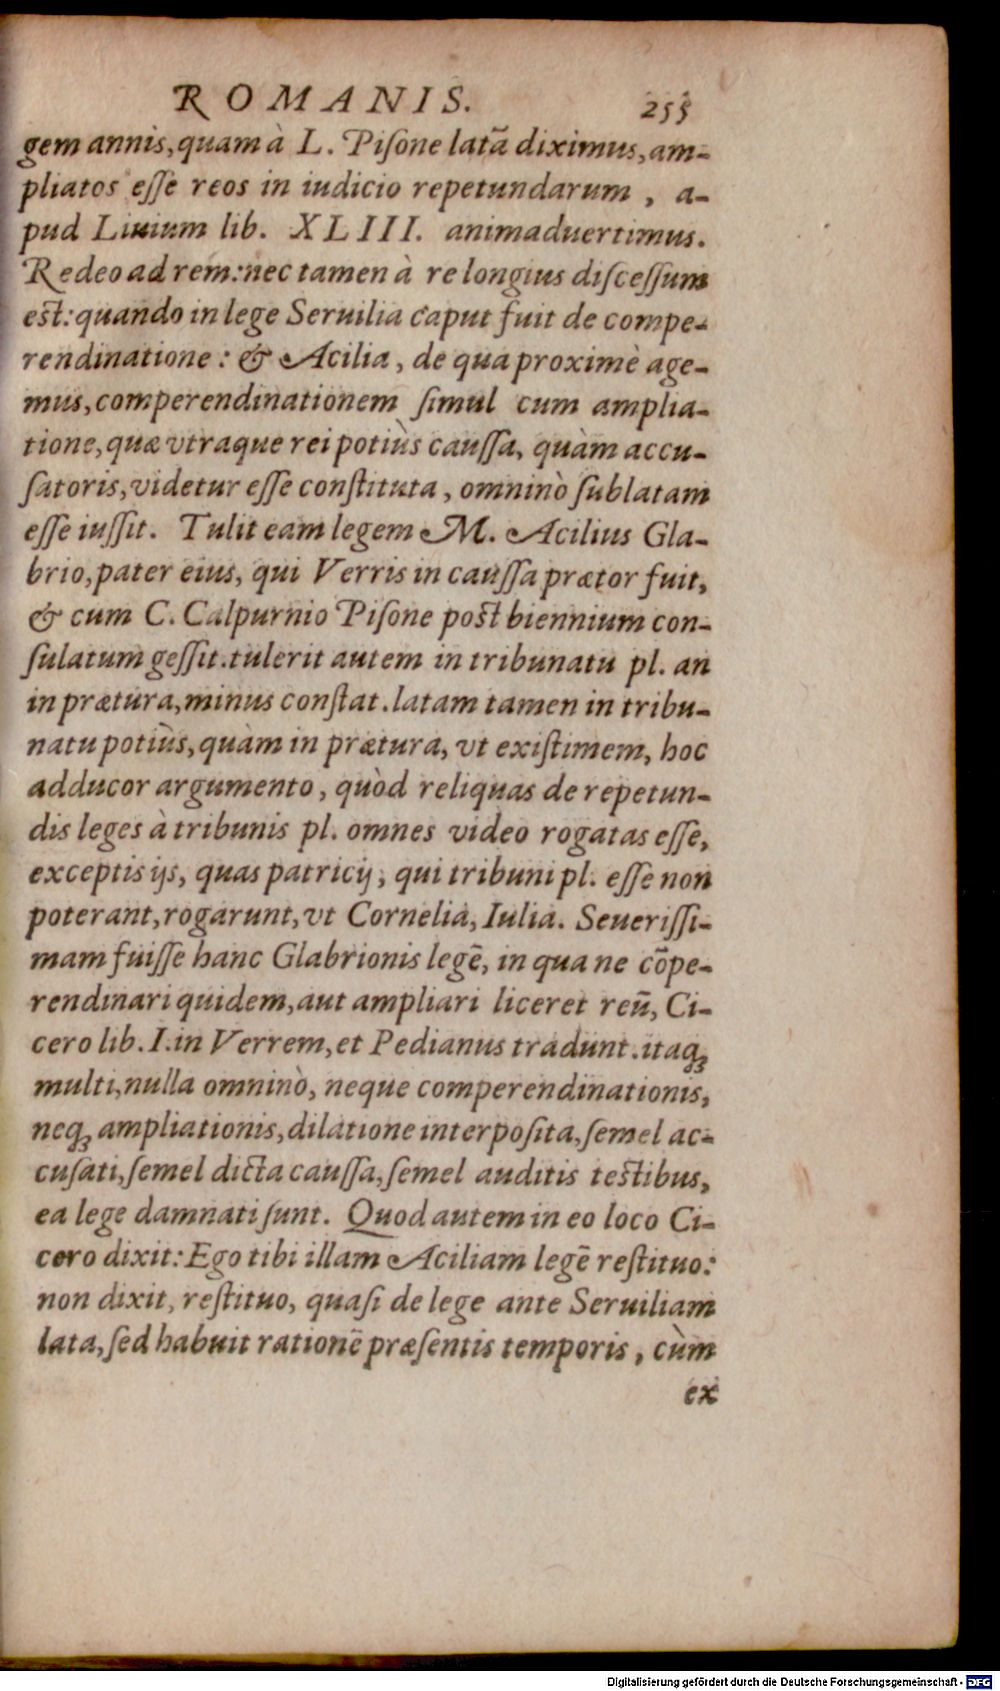 ROMANIS. 255
gem annis, quam à L. Piſone latã diximus, am-
pliatos eſſe reos in iudicio repetundarum, a-
pud Liuium lib. XLIII. animaduertimus.
Redeo ad rem: nec tamen à re longius diſceſſum
eſt: quando in lege Seruilia caput fuit de compe-
rendinatione: & Acilia, de qua proximè age-
mus, comperendinationem ſimul cum amplia-
tione, quæ vtraque rei potiùs cauſſa, quàm accu-
ſatoris, videtur eſſe conſtituta, omninò ſublatam
eſſe iuſſit. Tulit eam legem M. Acilius Gla-
brio, pater eius, qui Verris in cauſſa prætor fuit,
& cum C. Calpurnio Piſone poſt biennium con-
ſulatum geſſit. tulerit autem in tribunatu pl. an
in prætura, minus conſtat. latam tamen in tribu-
natu potiùs, quàm in prætura, vt exiſtimem, hoc
adducor argumento, quòd reliquas de repetun-
dis leges à tribunis pl. omnes video rogatas eſſe,
exceptis ijs, quas patricij, qui tribuni pl. eſſe non
poterant, rogarunt, vt Cornelia, Iulia. Seueriſſi-
mam fuiſſe hanc Glabrionis legẽ, in qua ne cõpe-
rendinari quidem, aut ampliari liceret reũ, Ci-
cero lib. I. in Verrem, et Pedianus tradunt. itaqꝫ
multi, nulla omninò, neque comperendinationis,
neqꝫ ampliationis, dilatione interpoſita, ſemel ac-
cuſati, ſemel dicta cauſſa, ſemel auditis teſtibus,
ea lege damnati ſunt. Quod autem in eo loco Ci-
cero dixit: Ego tibi illam Aciliam legẽ reſtituo:
non dixit, reſtituo, quaſi de lege ante Seruiliam
lata, ſed habuit rationẽ præſentis temporis, cùm
ex
Digitalisierung gefördert durch die Deutsche Forschungsgemeinschaft - DFG